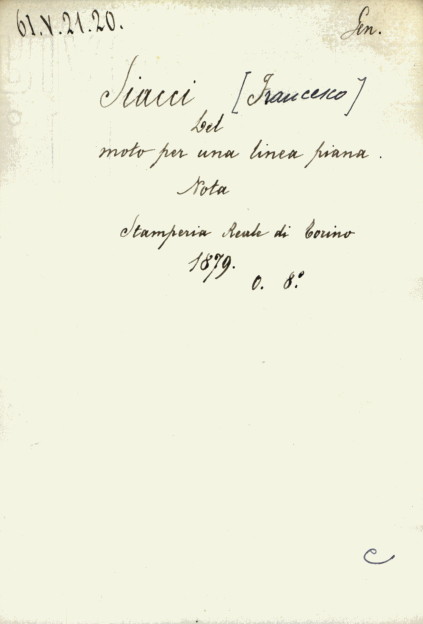 61.V.21.20.
Gen.
Siacci [Francesco]
Del
moto per una linea piana.
Nota
Stamperia Reale di Torino
1879.
O. 8.º
C